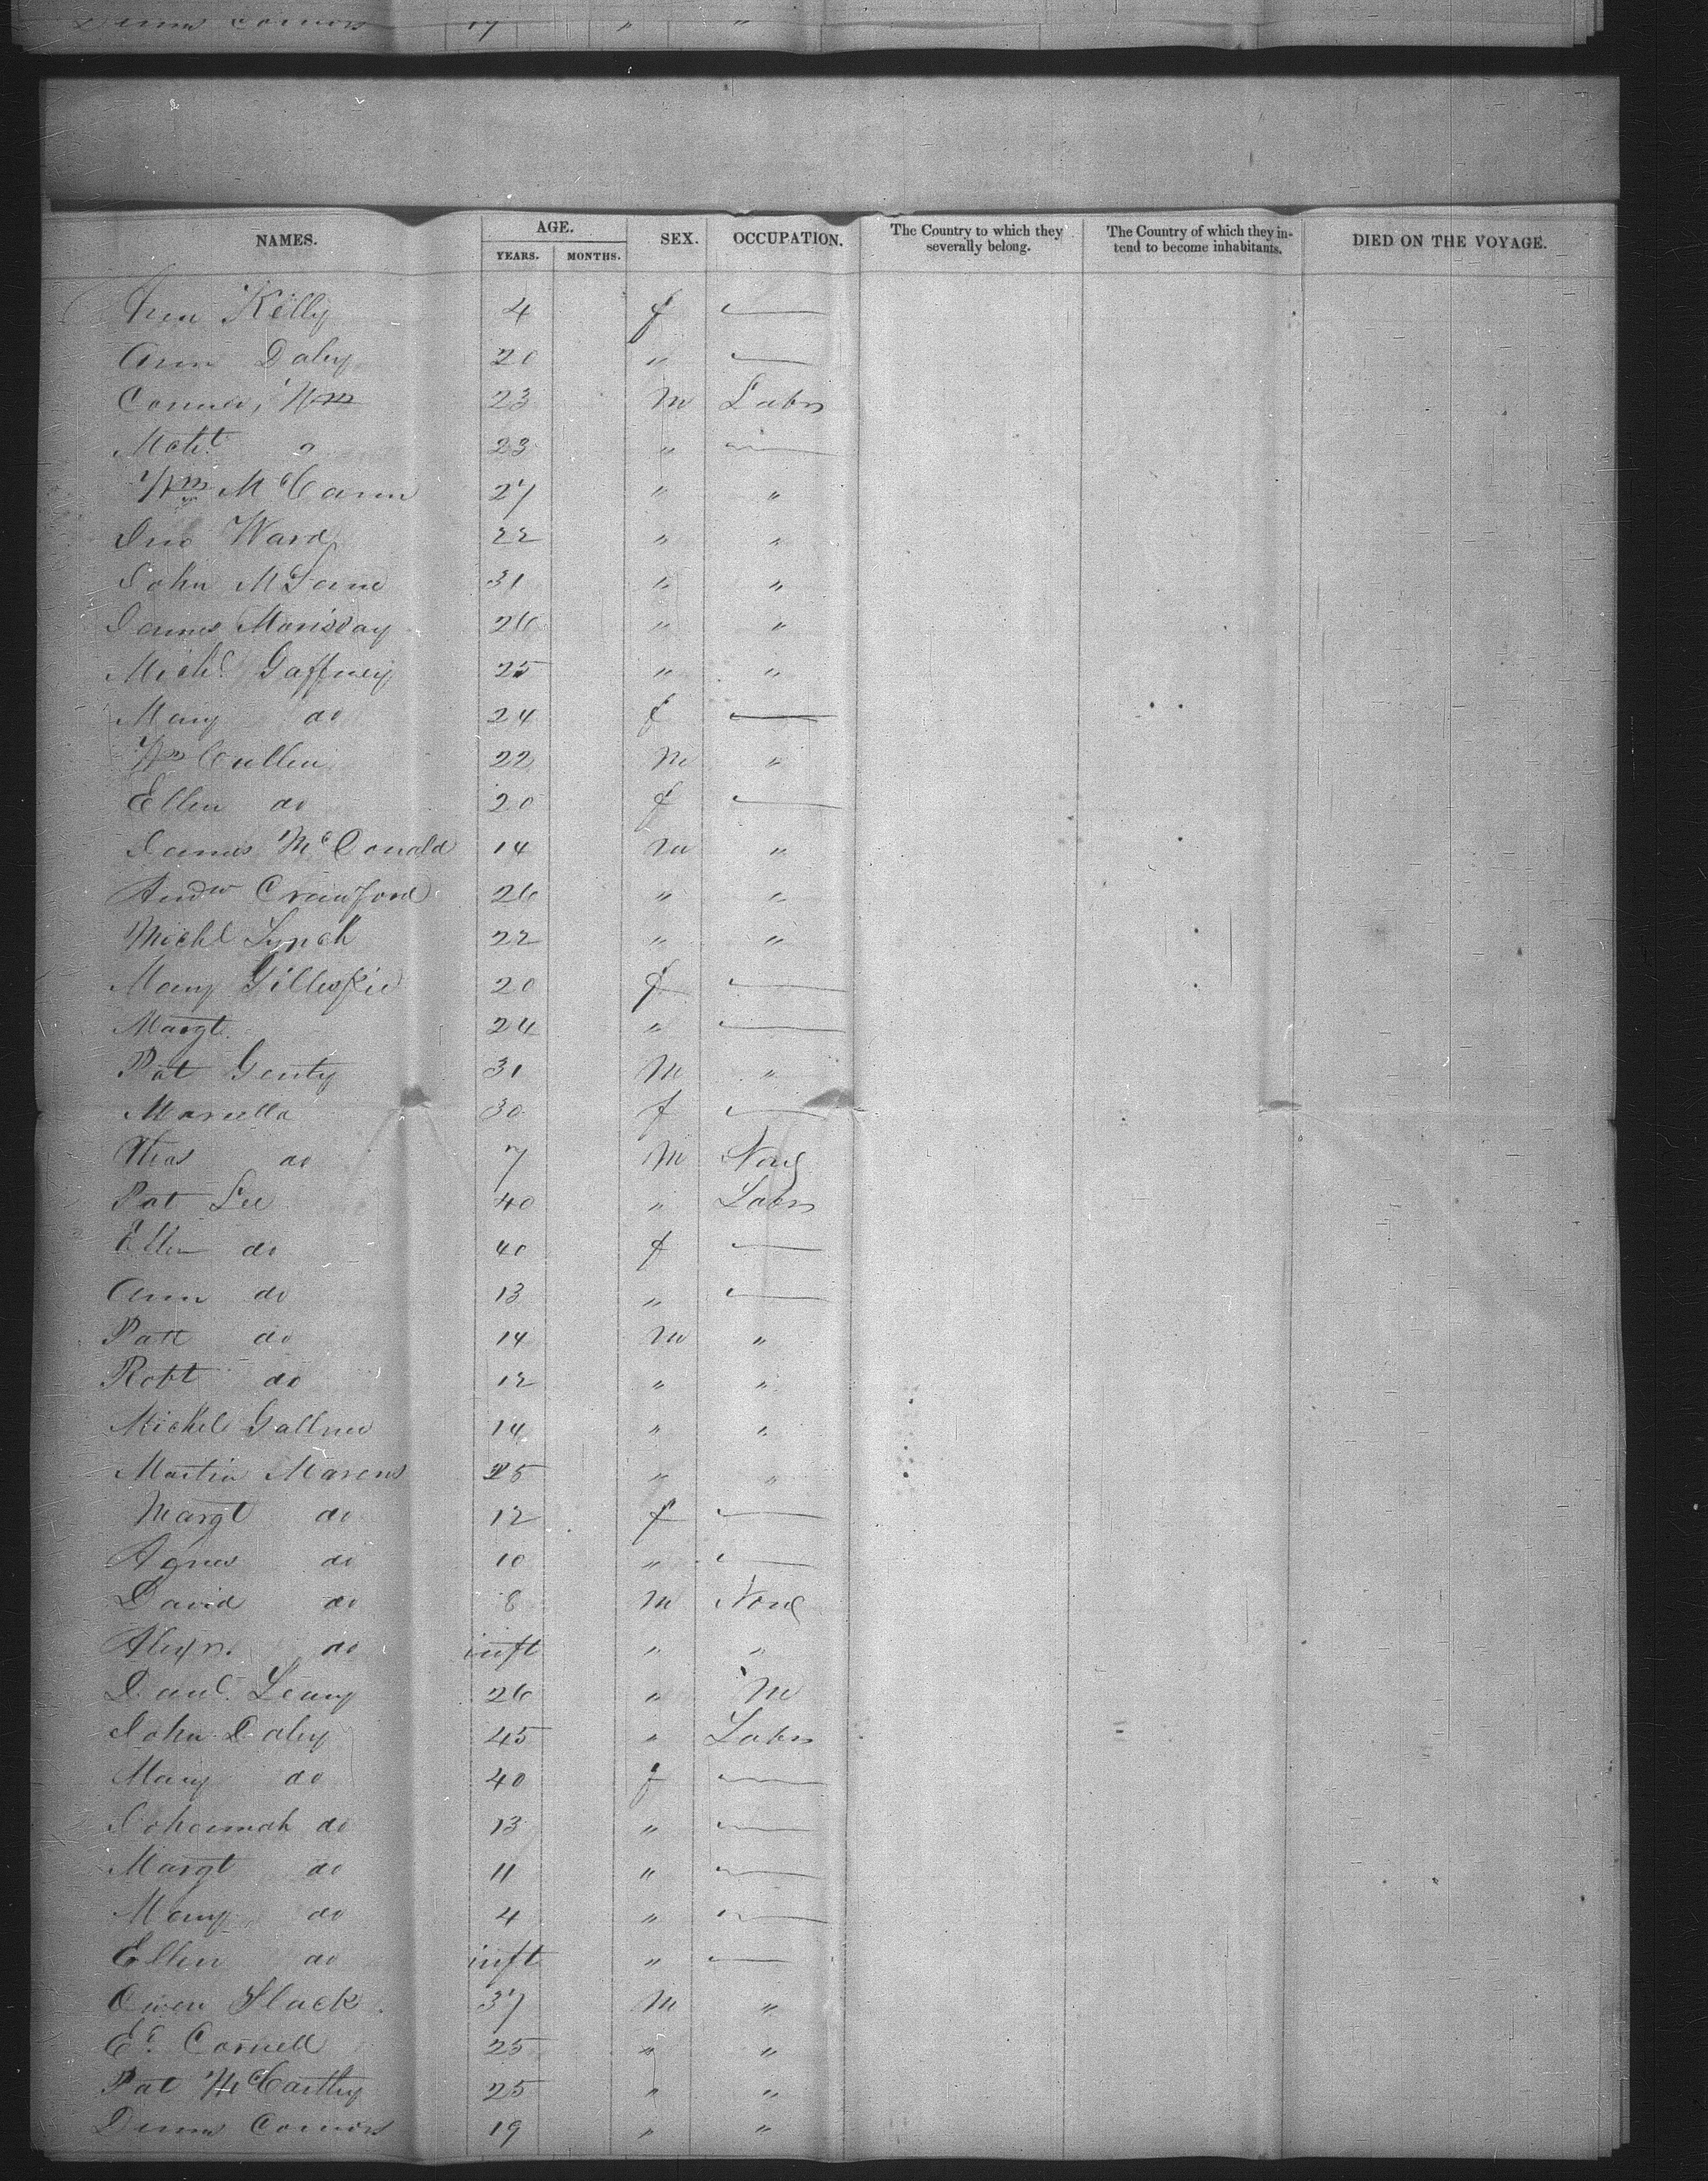 Connors 19 " "
NAMES. AGE. YEARS. MONTHS. SEX. OCCUPATION. The Country to which they severally belong. The Country of which they intend to become inhabitants. DIED ON THE VOYAGE.
Kelly 4 f —
Ann Daley 20 " —
Connor, Wm 23 M Labr
23 " —
Wm McCann 27 " "
Jno Ward 22 " "
John 31 " "
James 26 " "
Michl Gaffney 25 " "
Mary do 24 f —
Wm Cullen 22 M "
Ellen do 20 f —
James McDonald 14 M "
Andw Crawford 26 " "
Michl Lynch 22 " "
Mary Gillespie 20 f —
Margt 24 " —
Pat Genty 31 M "
30 f —
Thos do 7 M None
Pat Lee 40 " Labr
Ellen do 40 f —
Ann do 13 " —
Patt do 14 M "
Robt do 12 " "
Michl 14 " "
Martin 25 " "
Margt do 12 f —
Agnes do 10 " —
David do 8 M None
Alexr. do inft " "
Danl. Leary 26 " M
John Daley 45 " Labr
Mary do 40 f —
Johannah do 13 " —
Margt do 11 " —
Mary do 4 " —
Ellen do inft " —
Owen Slack 37 M "
25 " "
Pat McCarthy 25 " "
Connors 19 " "